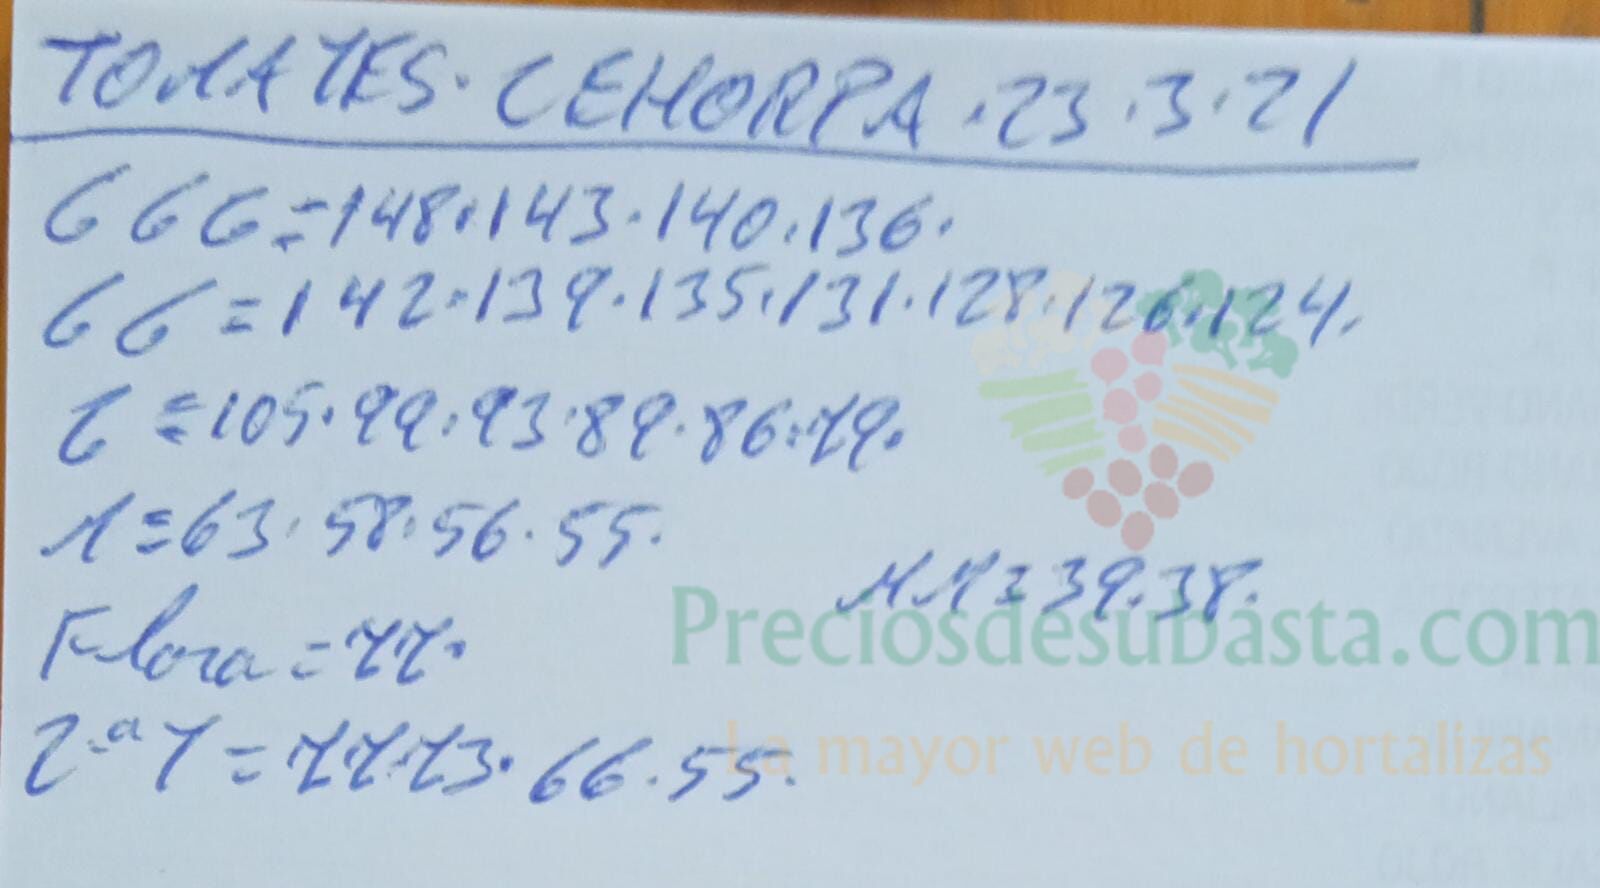 TOMATES. CEHORPA. 23.3.21
GGG=148.143.140.136.
GG=142.139.135.131.128.126.124.
G=105.99.93.89.86.79.
M=63.58.56.55.
MM=39.38.
Flora=77.
2ªT=77.73.66.55.
Preciosdesubasta.com
La mayor web de hortalizas